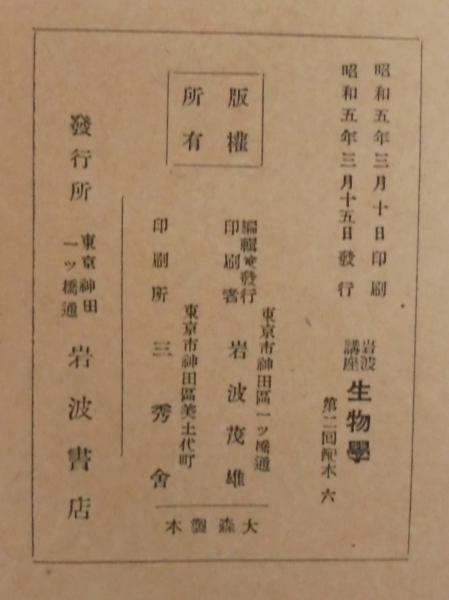 昭和五年三月十日印刷
昭和五年三月十五日發行
岩波講座 生物學
第二回配本 六
版權所有
東京市神田區一ツ橋通
編輯兼發行印刷者 岩波茂雄
東京市神田區美土代町
印刷所 三秀舍
大森製本
發行所 東京神田一ツ橋通 岩波書店